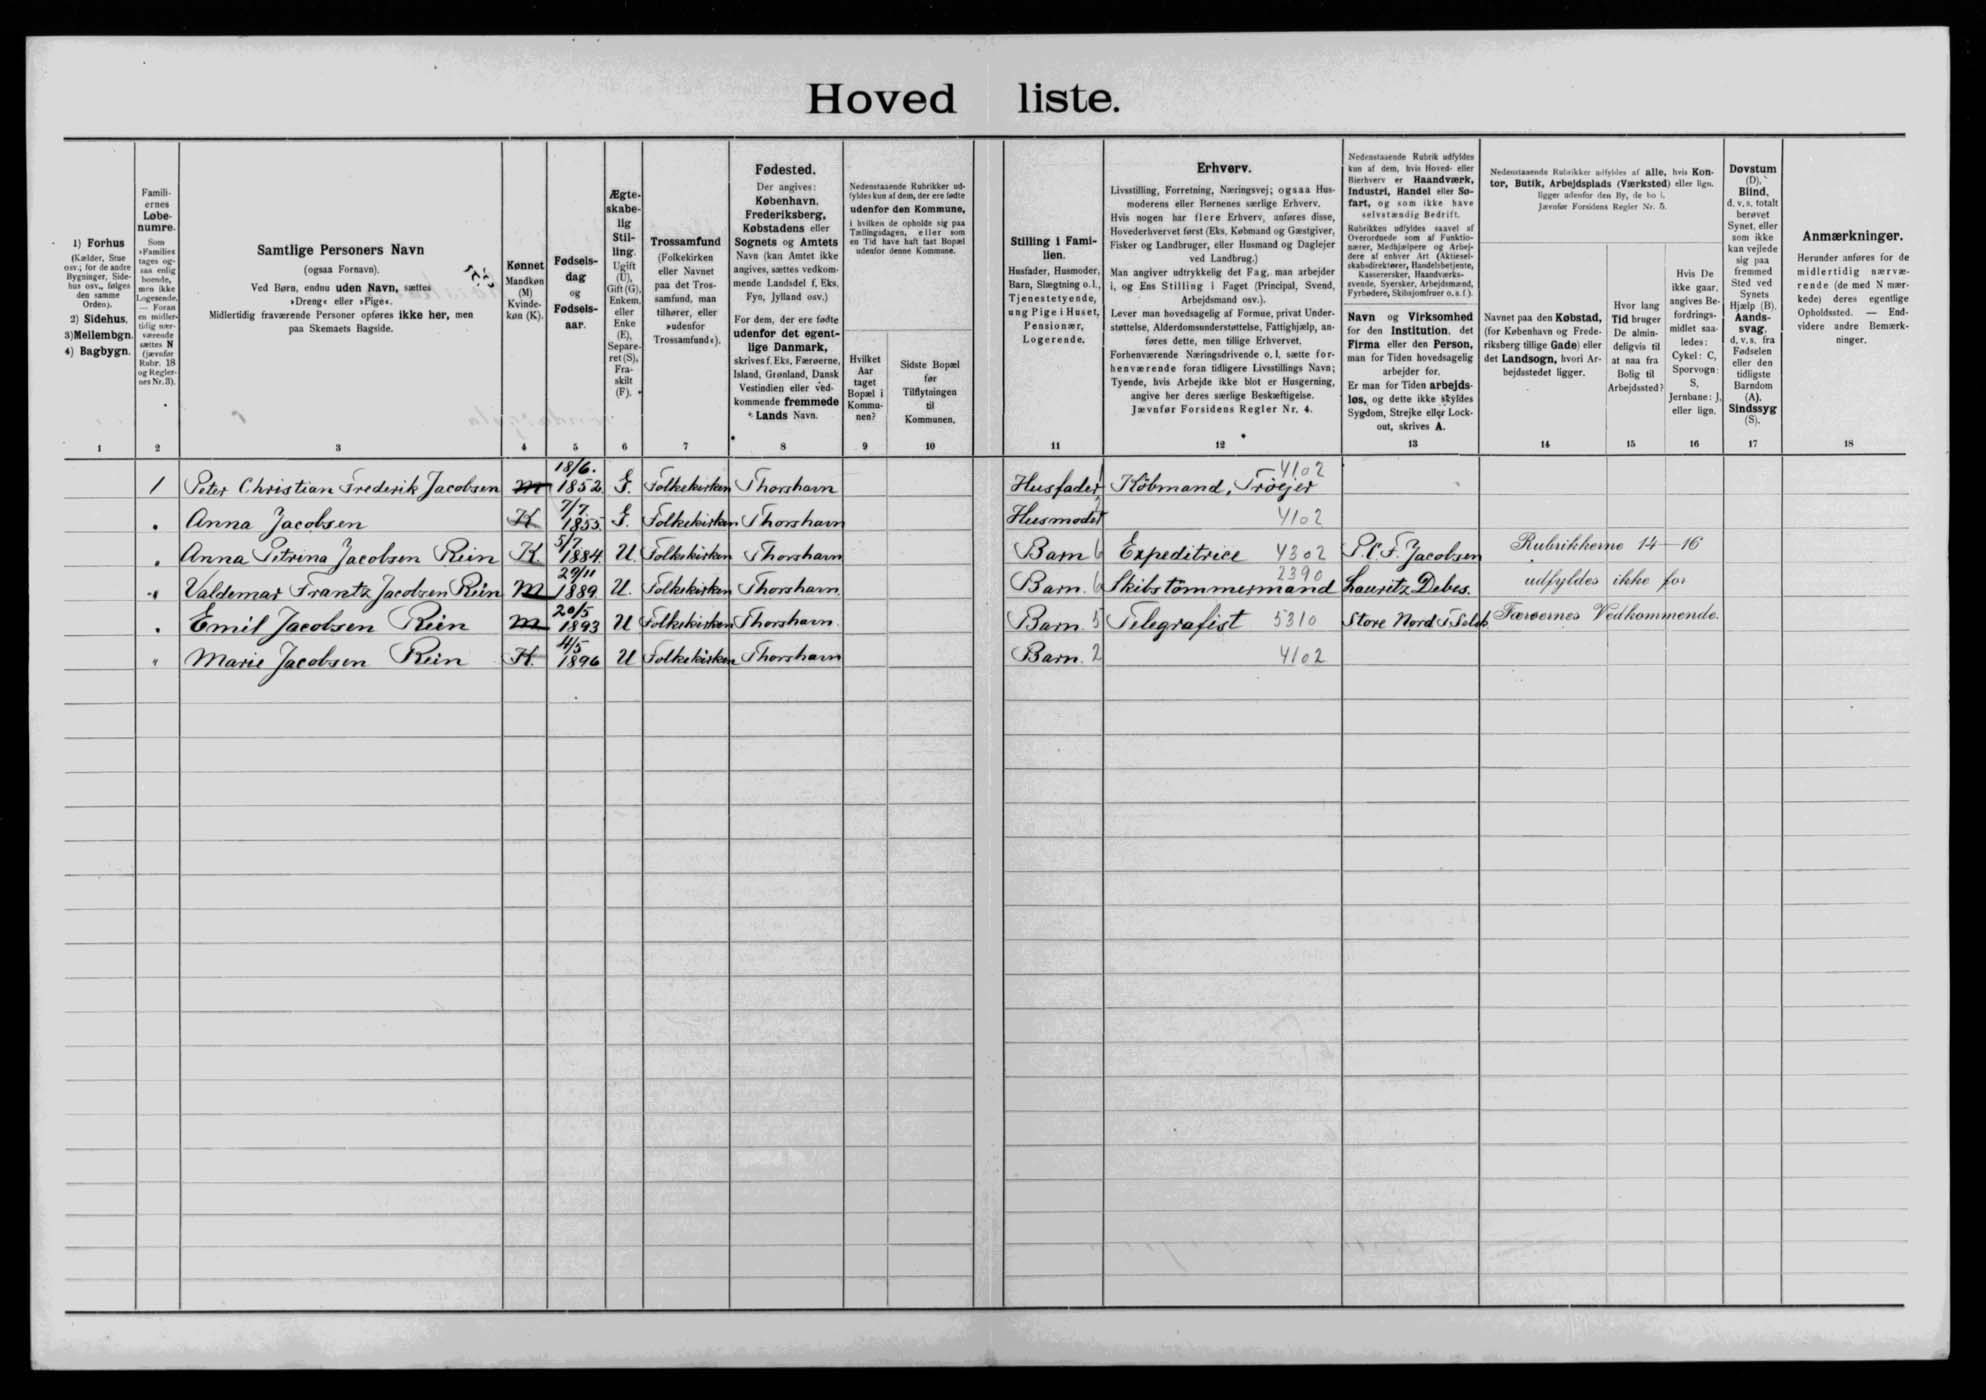 Hoved liste.
1) Forhus
(Kælder, Stue
osv.; for de andre
Bygninger, Side-
hus osv., følges
den samme
Orden).
2) Sidehus.
3) Mellembgn.
4) Bagbygn.
1
Famili-
ernes
Løbe-
numre.
Som
»Familie«
tages og-
saa enlig
boende,
men ikke
Logerende.
— Foran
en midler-
tidig nær-
værende
sættes N
(jævnfør
Rubr. 18
og Regler-
nes Nr. 3).
2
Samtlige Personers Navn
(ogsaa Fornavn).
Ved Børn, endnu uden Navn, sættes
»Dreng« eller »Pige«.
Midlertidig fraværende Personer opføres ikke her, men
paa Skemaets Bagside.
3
Kønnet
Mandkøn
(M)
Kvinde-
køn (K).
4
Fødsels-
dag
og
Fødsels-
aar.
5
Ægte-
skabe-
lig
Stil-
ling.
Ugift
(U),
Gift (G),
Enkem.
eller
Enke
(E),
Separe-
ret (S),
Fra-
skilt
(F).
6
Trossamfund
(Folkekirken
eller Navnet
paa det Tros-
samfund, man
tilhører, eller
»udenfor
Trossamfund«).
7
Fødested.
Der angives:
København,
Frederiksberg,
Købstadens eller
Sognets og Amtets
Navn (kan Amtet ikke
angives, sættes vedkom-
mende Landsdel f. Eks.
Fyn, Jylland osv.)
For dem, der ere fødte
udenfor det egent-
lige Danmark,
skrives f. Eks. Færøerne,
Island, Grønland, Dansk
Vestindien eller ved-
kommende fremmede
Lands Navn.
8
Nedenstaaende Rubrikker ud-
fyldes kun af dem, der ere fødte
udenfor den Kommune,
i hvilken de opholde sig paa
Tællingsdagen, eller som
en Tid have haft fast Bopæl
udenfor denne Kommune.
Hvilket
Aar
taget
Bopæl i
Kommu-
nen?
9
Sidste Bopæl
før
Tilflytningen
til
Kommunen.
10
Stilling i Fami-
lien.
Husfader, Husmoder,
Barn, Slægtning o. l.,
Tjenestetyende,
ung Pige i Huset,
Pensionær,
Logerende.
11
Erhverv.
Livsstilling, Forretning, Næringsvej; ogsaa Hus-
moderens eller Børnenes særlige Erhverv.
Hvis nogen har flere Erhverv, anføres disse,
Hovederhvervet først (Eks. Købmand og Gæstgiver,
Fisker og Landbruger, eller Husmand og Daglejer
ved Landbrug.)
Man angiver udtrykkelig det Fag, man arbejder
i, og Ens Stilling i Faget (Principal, Svend,
Arbejdsmand osv.).
Lever man hovedsagelig af Formue, privat Under-
støttelse, Alderdomsunderstøttelse, Fattighjælp, an-
føres dette, men tillige Erhvervet.
Forhenværende Næringsdrivende o. l. sætte for-
henværende foran tidligere Livsstillings Navn;
Tyende, hvis Arbejde ikke blot er Husgerning,
angive her deres særlige Beskæftigelse.
Jævnfør Forsidens Regler Nr. 4.
12
Nedenstaaende Rubrik udfyldes
kun af dem, hvis Hoved- eller
Bierhverv er Haandværk,
Industri, Handel eller Sø-
fart, og som ikke have
selvstændig Bedrift.
Rubrikken udfyldes saavel af
Overordnede som af Funktio-
nærer, Medhjælpere og Arbej-
dere af enhver Art (Aktiesel-
skabsdirektører, Handelsbetjente,
Kassererske, Haandværks-
svende, Syersker, Arbejdsmænd,
Fyrbødere, Skibsjomfruer o. s. f.).
Navn og Virksomhed
for den Institution, det
Firma eller den Person,
man for Tiden hovedsagelig
arbejder for.
Er man for Tiden arbejds-
løs, og dette ikke skyldes
Sygdom, Strejke eller Lock-
out, skrives A.
13
Nedenstaaende Rubrikker udfyldes af alle, hvis Kon-
tor, Butik, Arbejdsplads (Værksted) eller lign.
ligger udenfor den By, de bo i.
Jævnfør Forsidens Regler Nr. 5.
Navnet paa den Købstad,
(for København og Frede-
riksberg tillige Gade) eller
det Landsogn, hvori Ar-
bejdsstedet ligger.
14
Hvor lang
Tid bruger
De almin-
deligvis til
at naa fra
Bolig til
Arbejdssted?
15
Hvis De
ikke gaar,
angives Be-
fordrings-
midlet saa-
ledes:
Cykel: C,
Sporvogn:
S,
Jernbane: J,
eller lign.
16
Døvstum
(D),
Blind,
d. v. s. totalt
berøvet
Synet, eller
som ikke
kan vejlede
sig paa
fremmed
Sted ved
Synets
Hjælp (B).
Aands-
svag,
d. v. s. fra
Fødselen
eller den
tidligste
Barndom
(A).
Sindssyg
(S).
17
Anmærkninger.
Herunder anføres for de
midlertidig nærvæ-
rende (de med N mær-
kede) deres egentlige
Opholdssted. — End-
videre andre Bemærk-
ninger.
18
1 Peter Christian Frederik Jacobsen M 18/6. 1852 G. Folkekirken Thorshavn Husfader 1 Købmand, Trøjer 4102
" Anna Jacobsen K 7/7 1855. G. Folkekirken Thorshavn Husmoder 4102
" Anna Petrina Jacobsen Rein K. 5/7 1884. U. Folkekirken Thorshavn Barn 6 Expeditrice 4302 P. C. F. Jacobsen Rubrikkerne 14-16
" Valdemar Frantz Jacobsen Rein M 29/11 1889. U. Folkekirken Thorshavn. Barn. 6 Skibstømmermand 2390 Lauritz Debes. udfyldes ikke for
" Emil Jacobsen Rein M 20/5 1893 U Folkekirken Thorshavn. Barn. 5 Telegrafist 5310 Store Nord T. Selsk Færøernes Vedkommende.
" Marie Jacobsen Rein K. 4/5 1896 U Folkekirken Thorshavn Barn. 2 4102